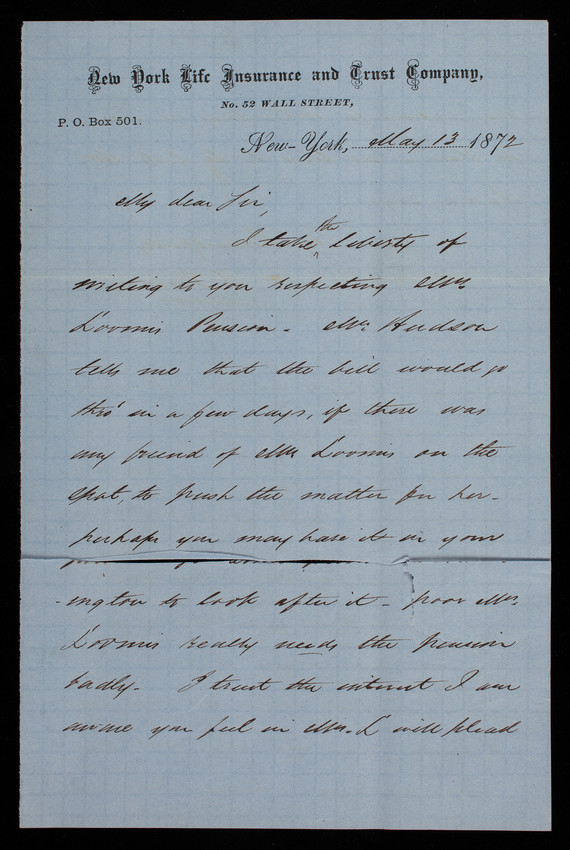 New York Life Insurance and Trust Company,
No. 52 WALL STREET,
P. O. Box 501.
New-York, May 13 1872
My dear Sir,
I take the liberty of
writing to you respecting Mrs
Loomis Pension - Mr. Hudson
tells me that the bill would go
thro' in a few days, if there was
any friend of Mrs Loomis on the
spot, to push the matter for her -
perhaps you may have it in your
-ington to look after it - poor Mrs.
Loomis really needs the pension
badly. I trust the interest I am
aware you feel in Mrs. L will plead